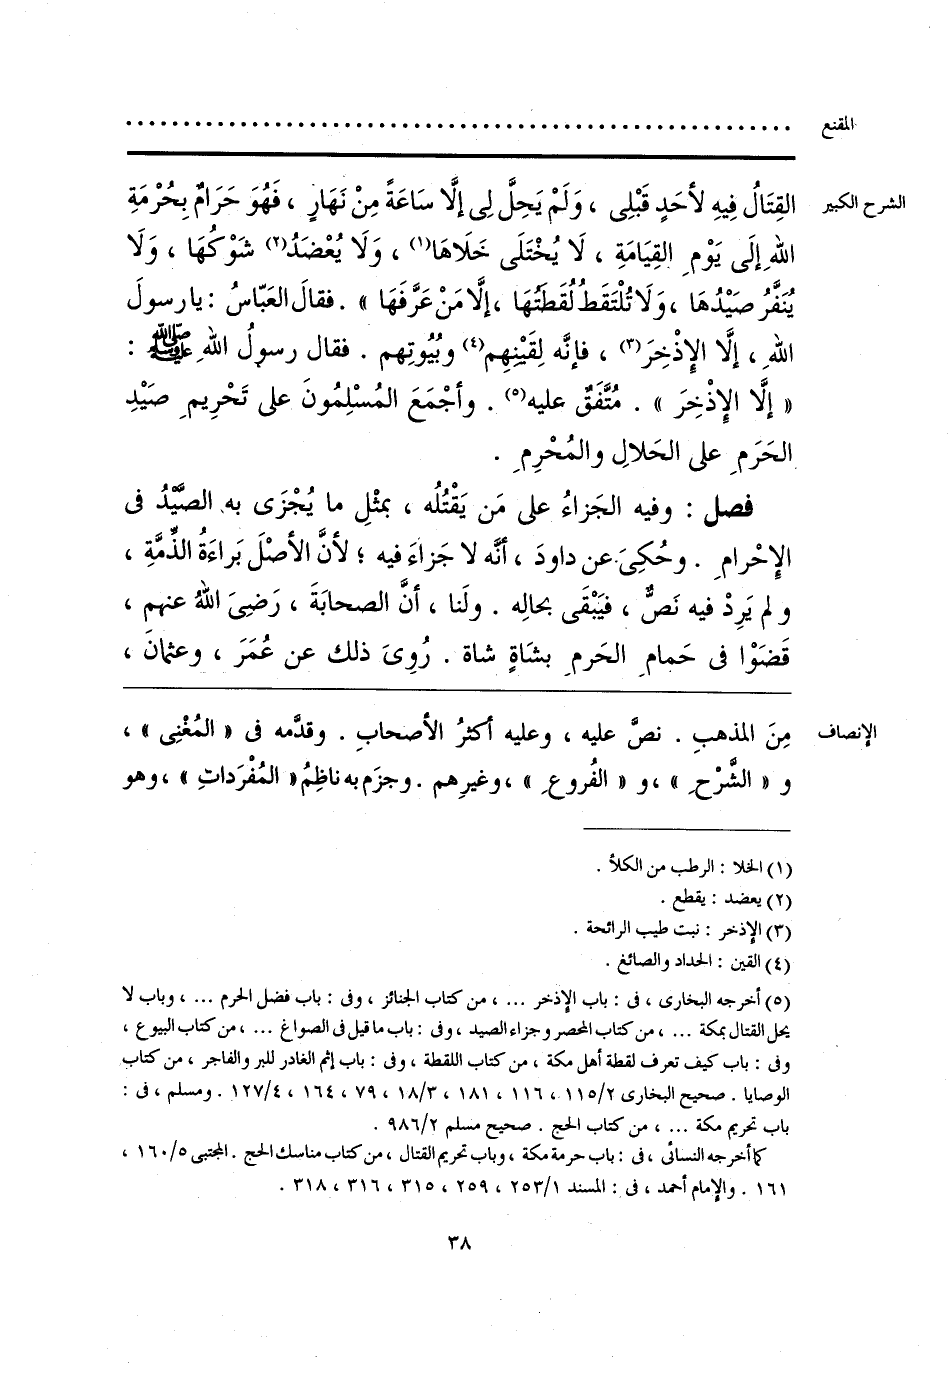 المقنع ..........................................................
الشرح الكبير القِتَالُ فِيهِ لأحَدٍ قَبْلِى ، وَلَمْ يَحِلَّ لِى إلَّا سَاعَةً مِنْ نَهَارٍ ، فَهُوَ حَرَامٌ بِحُرْمَةِ
اللهِ إلَى يَوْمِ القِيَامَةِ ، لَا يُخْتَلَى خَلَاهَا(١) ، وَلَا يُعْضَدُ(٢) شَوْكُهَا ، وَلَا
يُنَفَّرُ صَيْدُهَا ، وَلَا تُلْتَقَطُ لُقَطَتُهَا ، إلَّا مَنْ عَرَّفَهَا » . فقالَ العَبّاسُ : يا رسولَ
اللهِ ، إلَّا الإِذْخِرَ(٣) ، فإنَّه لِقَيْنِهِم(٤) وبُيُوتِهم . فقال رسولُ اللهِ ﷺ :
« إلَّا الإِذْخِرَ » . مُتَّفَقٌ عليه(٥) . وأجْمَعَ المُسْلِمُونَ على تَحْرِيمِ صَيْدِ
الحَرَمِ على الحَلالِ والمُحْرِمِ .
فصل : وفيه الجَزاءُ على مَن يَقْتُلُه ، بمثْلِ ما يُجْزَى به الصَّيْدُ فى
الإِحْرامِ . وحُكِىَ عن داودَ ، أنَّه لا جَزاءَ فيه ؛ لأنَّ الأصْلَ بَراءَةُ الذِّمَّةِ ،
و لم يَرِدْ فيه نَصٌّ ، فيَبْقَى بحالِه . ولَنا ، أنَّ الصحابَةَ ، رَضِىَ اللهُ عنهم ،
قَضَوْا فى حَمامِ الحَرمِ بشَاةٍ شاة . رُوِىَ ذلك عن عُمَرَ ، وعثمانَ ،
الإنصاف مِنَ المذهبِ . نصَّ عليه ، وعليه أكثرُ الأصحابِ . وقدَّمه فى « المُغْنِى » ،
و « الشَّرْحِ » ، و « الفُروعِ » ، وغيرِهم . وجزَم به ناظِمُ « المُفْرَداتِ » ، وهو
(١) الخلا : الرطب من الكلأ .
(٢) يعضد : يقطع .
(٣) الإذخر : نبت طيب الرائحة .
(٤) القين : الحداد والصائغ .
(٥) أخرجه البخارى ، فى : باب الإذخر ... ، من كتاب الجنائز ، وفى : باب فضل الحرم ... ، وباب لا
يحل القتال بمكة ... ، من كتاب المحصر وجزاء الصيد ، وفى : باب ما قيل فى الصواغ ... ، من كتاب البيوع ،
وفى : باب كيف تعرف لقطة أهل مكة ، من كتاب اللقطة ، وفى : باب إثم الغادر للبر والفاجر ، من كتاب
الوصايا . صحيح البخارى ١١٥/٢ ، ١١٦ ، ١٨١ ، ١٨/٣ ، ٧٩ ، ١٦٤ ، ١٢٧/٤ . ومسلم ، فى :
باب تحريم مكة ... ، من كتاب الحج . صحيح مسلم ٩٨٦/٢ .
كما أخرجه النسائى ، فى : باب حرمة مكة ، وباب تحريم القتال ، من كتاب مناسك الحج . المجتبى ١٦٠/٥ ،
١٦١ . والإمام أحمد ، فى : المسند ٢٥٣/١ ، ٢٥٩ ، ٣١٥ ، ٣١٦ ، ٣١٨ .
٣٨